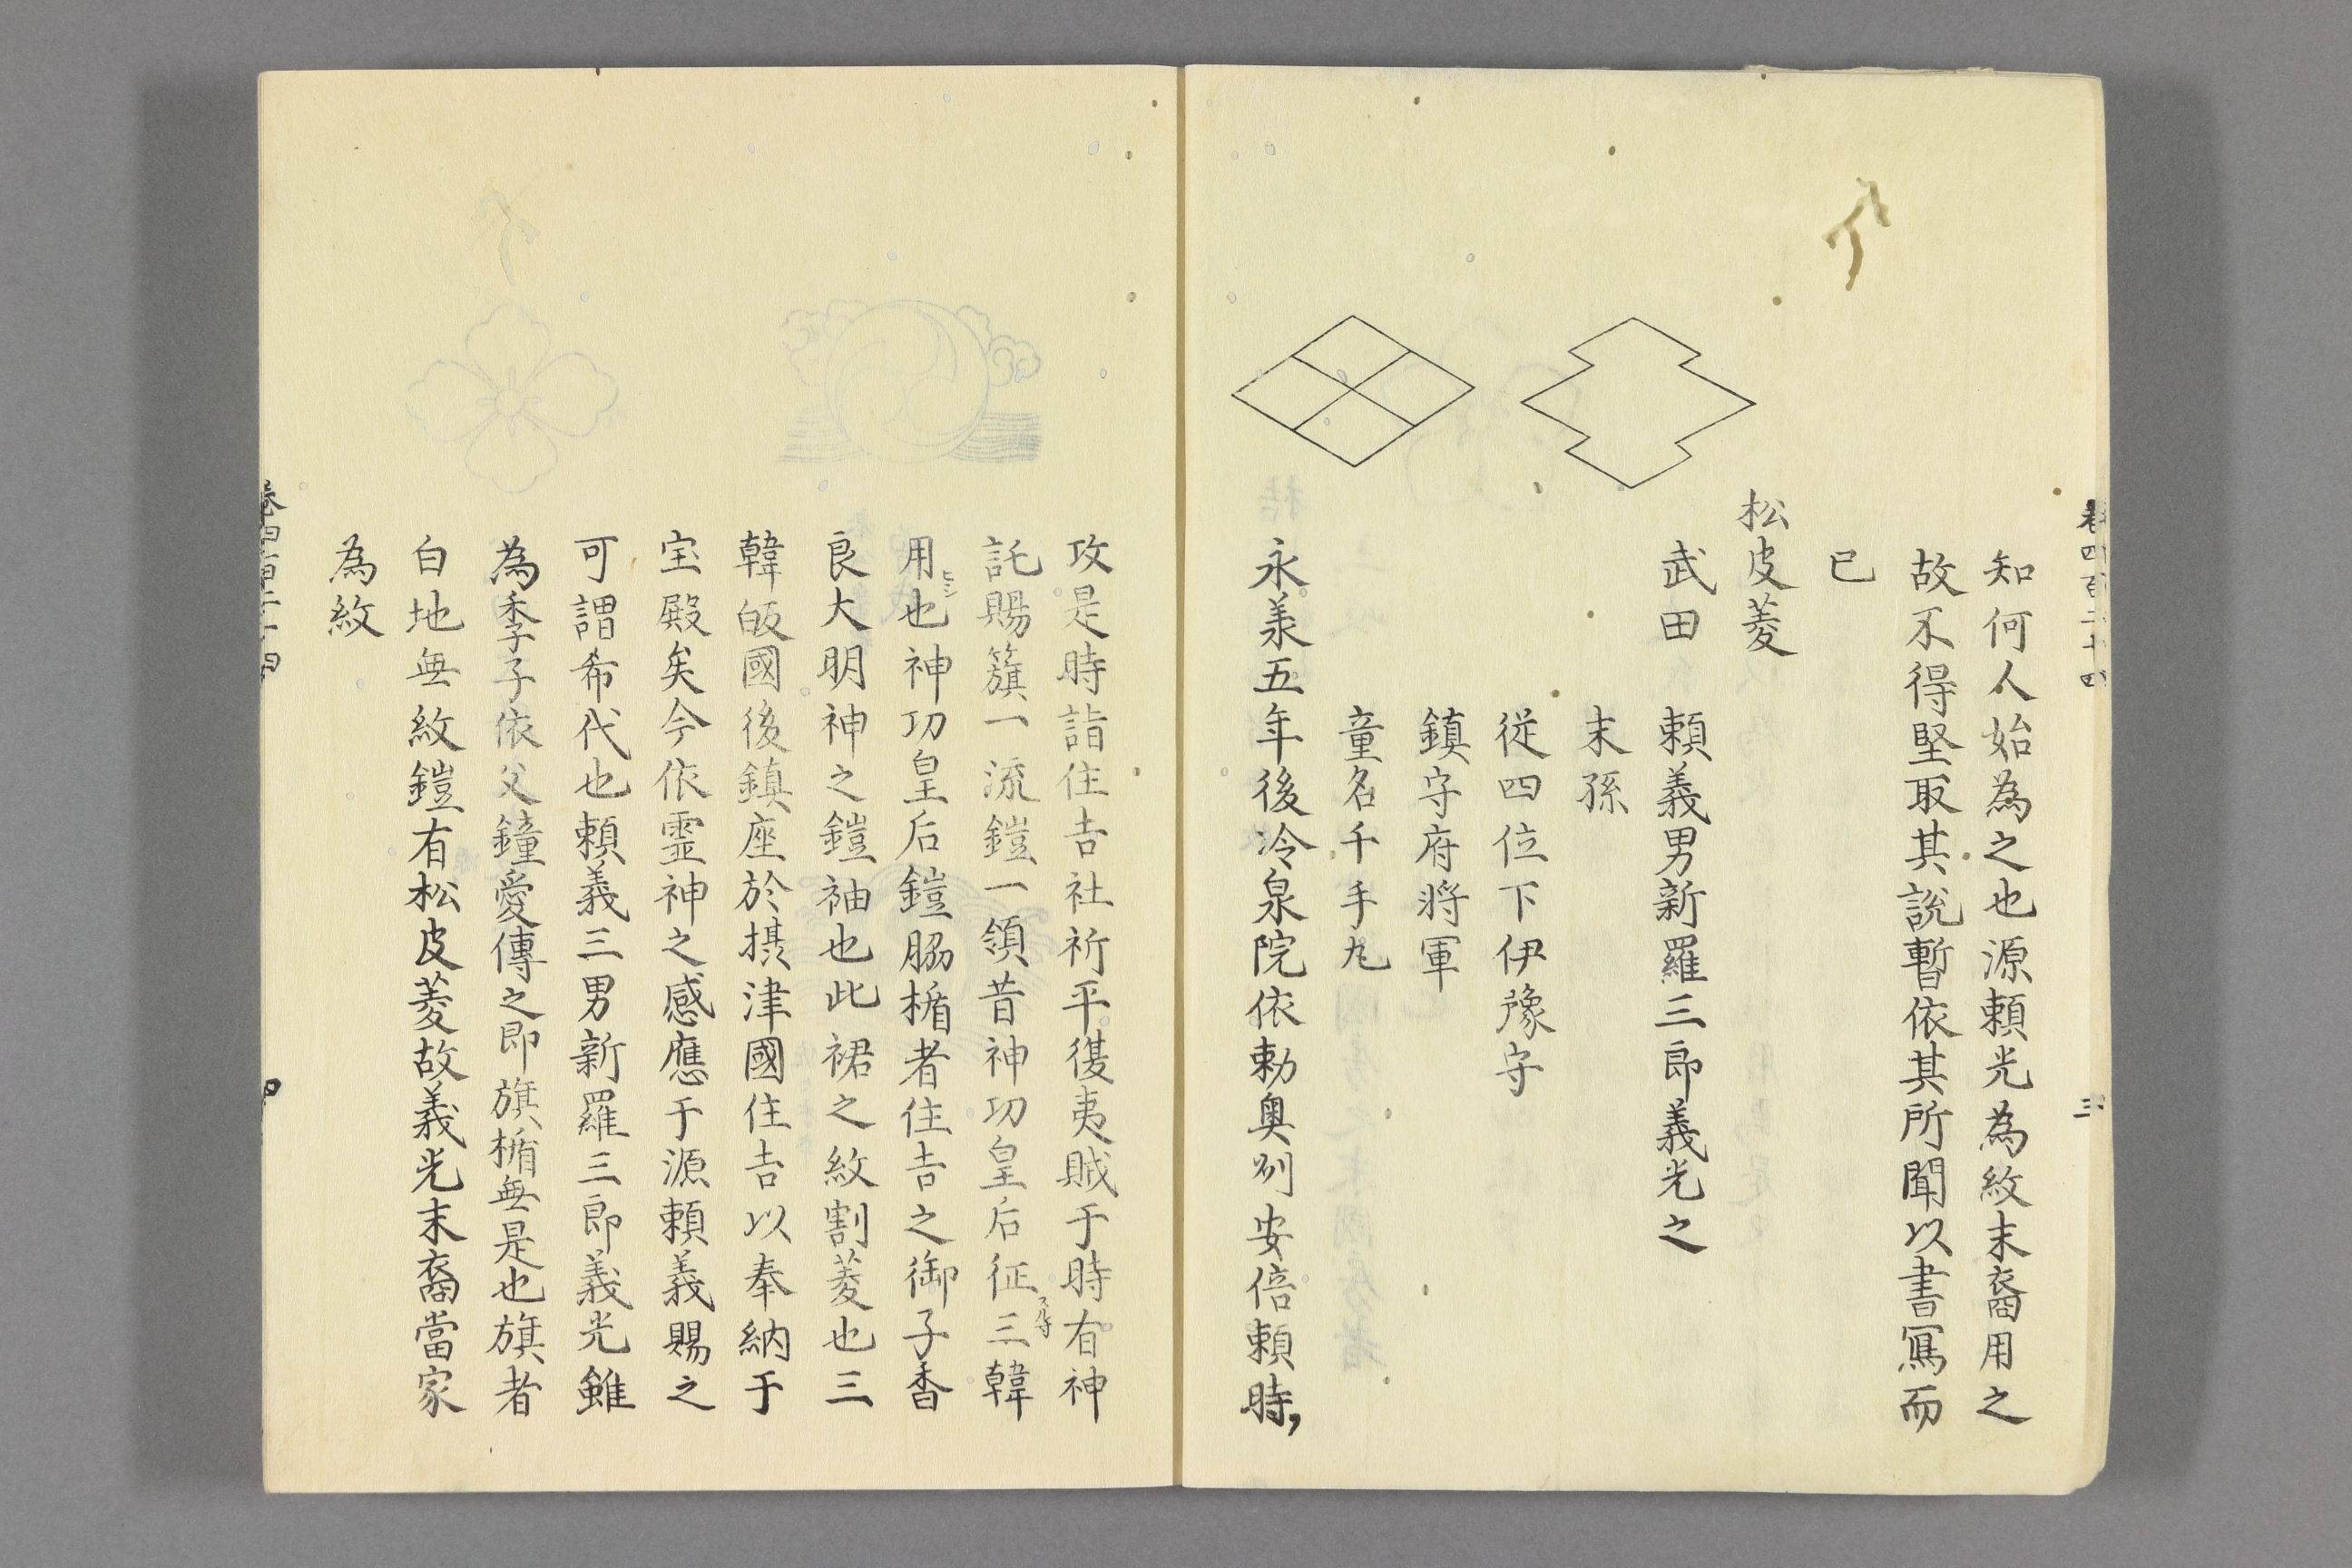 卷四百二十四
三
知何人始為之也源頼光為紋末裔用之
故不得堅取其説暫依其所聞以書寫而
已
松皮菱
武田
頼義男新羅三郎義光之
末孫
従四位下伊豫守
鎮守府将軍
童名千手丸
永義五年後冷泉院依勅奥州安倍頼時
攻是時詣住吉社祈平復夷賊于時有神
託賜籏一流鎧一領昔神功皇后征三韓
スル時
用也神功皇后鎧脇楯者住吉之御子香
ヒシ
良大明神之鎧袖也此裙之紋割菱也三
韓皈國後鎮座於摂津國住吉以奉納于
宝殿矣今依霊神之感應于源頼義賜之
可謂希代也頼義三男新羅三郎義光雖
為季子依父鐘愛傳之即旗楯無是也旗者
白地無紋鎧有松皮菱故義光末裔當家
為紋
卷四百二十四
四